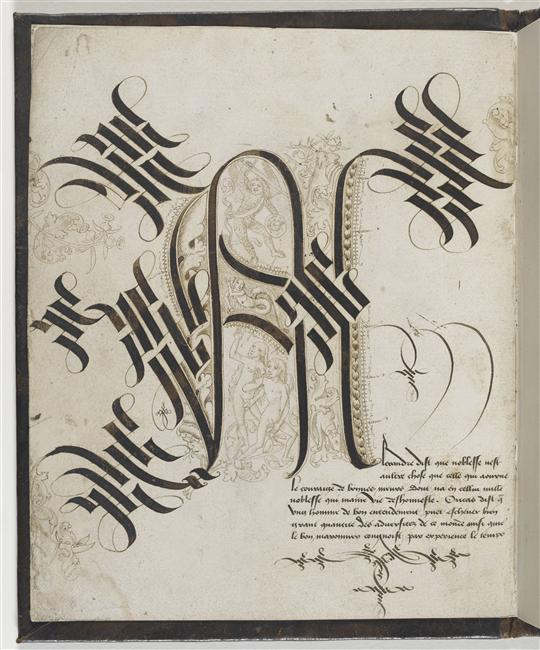 A
lexandre dist que noblesse nest
aultre chose que celle qui aourne
le couraige de bonnes meurs dont na en cellui nulle
noblesse qui maine vie deshonneste. dist q̃
ung homme de bon entendement puet eschever bien
grant quantité des adversites de ce monde ainsi que
le bon maronnier congnoist par experience le temps